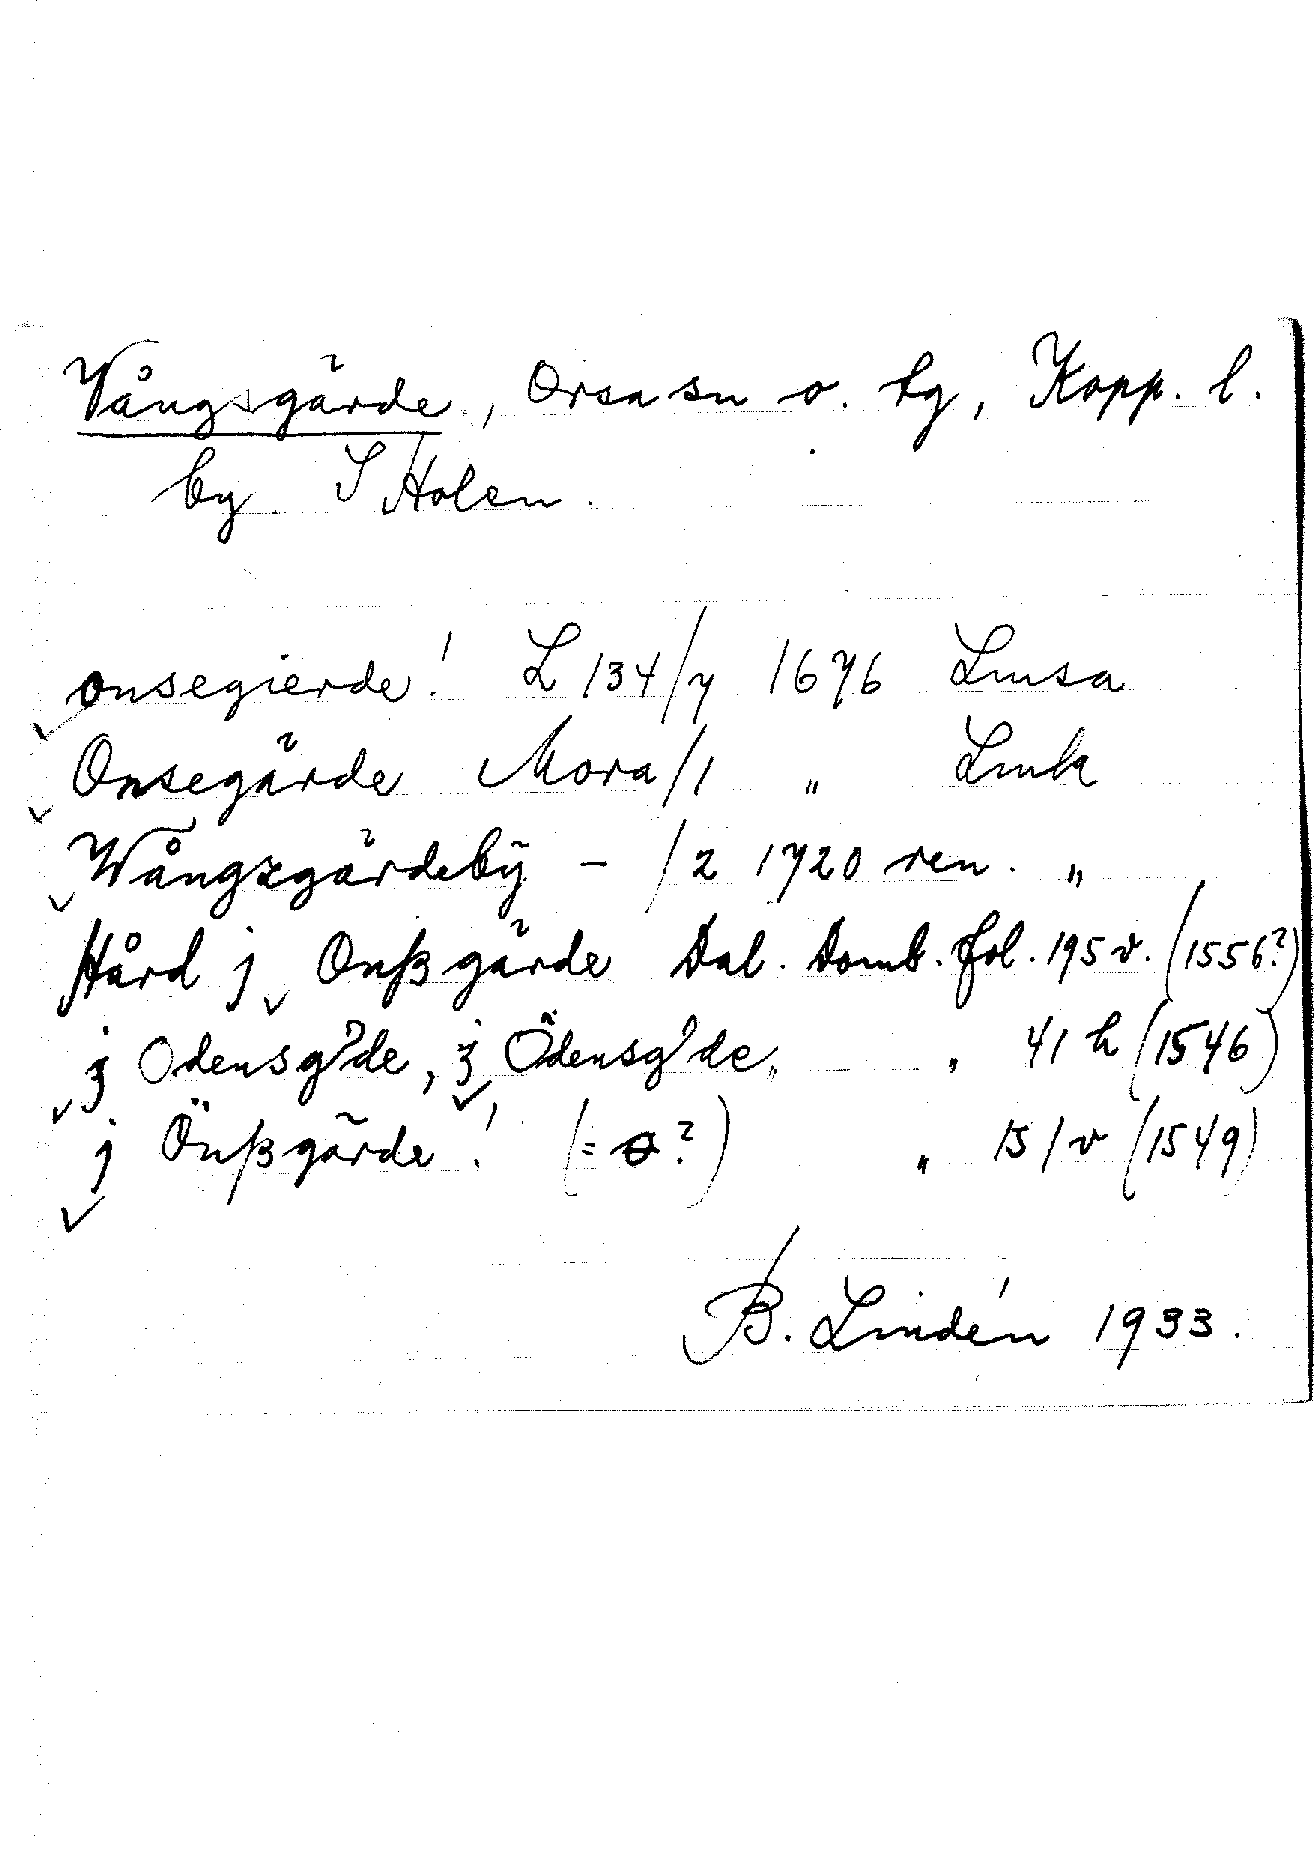 Vångsgärde, Orsa sn o. tg, Kopp. l.
by S Holen.
onsegierde! L 134/7 1676 Lmsa
Onsegärde Mora/1 „ Lmk
Wångzgärdebÿ – /2 1720 ren. „
Hård j Onßgärde Dal. Domb. fol. 195 v. (1556?)
j Odensg'de, j Ödensg'de „ 41 h (1546)
j Önßgärde! (= o?) „ 151 v (1549)
B. Lindén 1933.